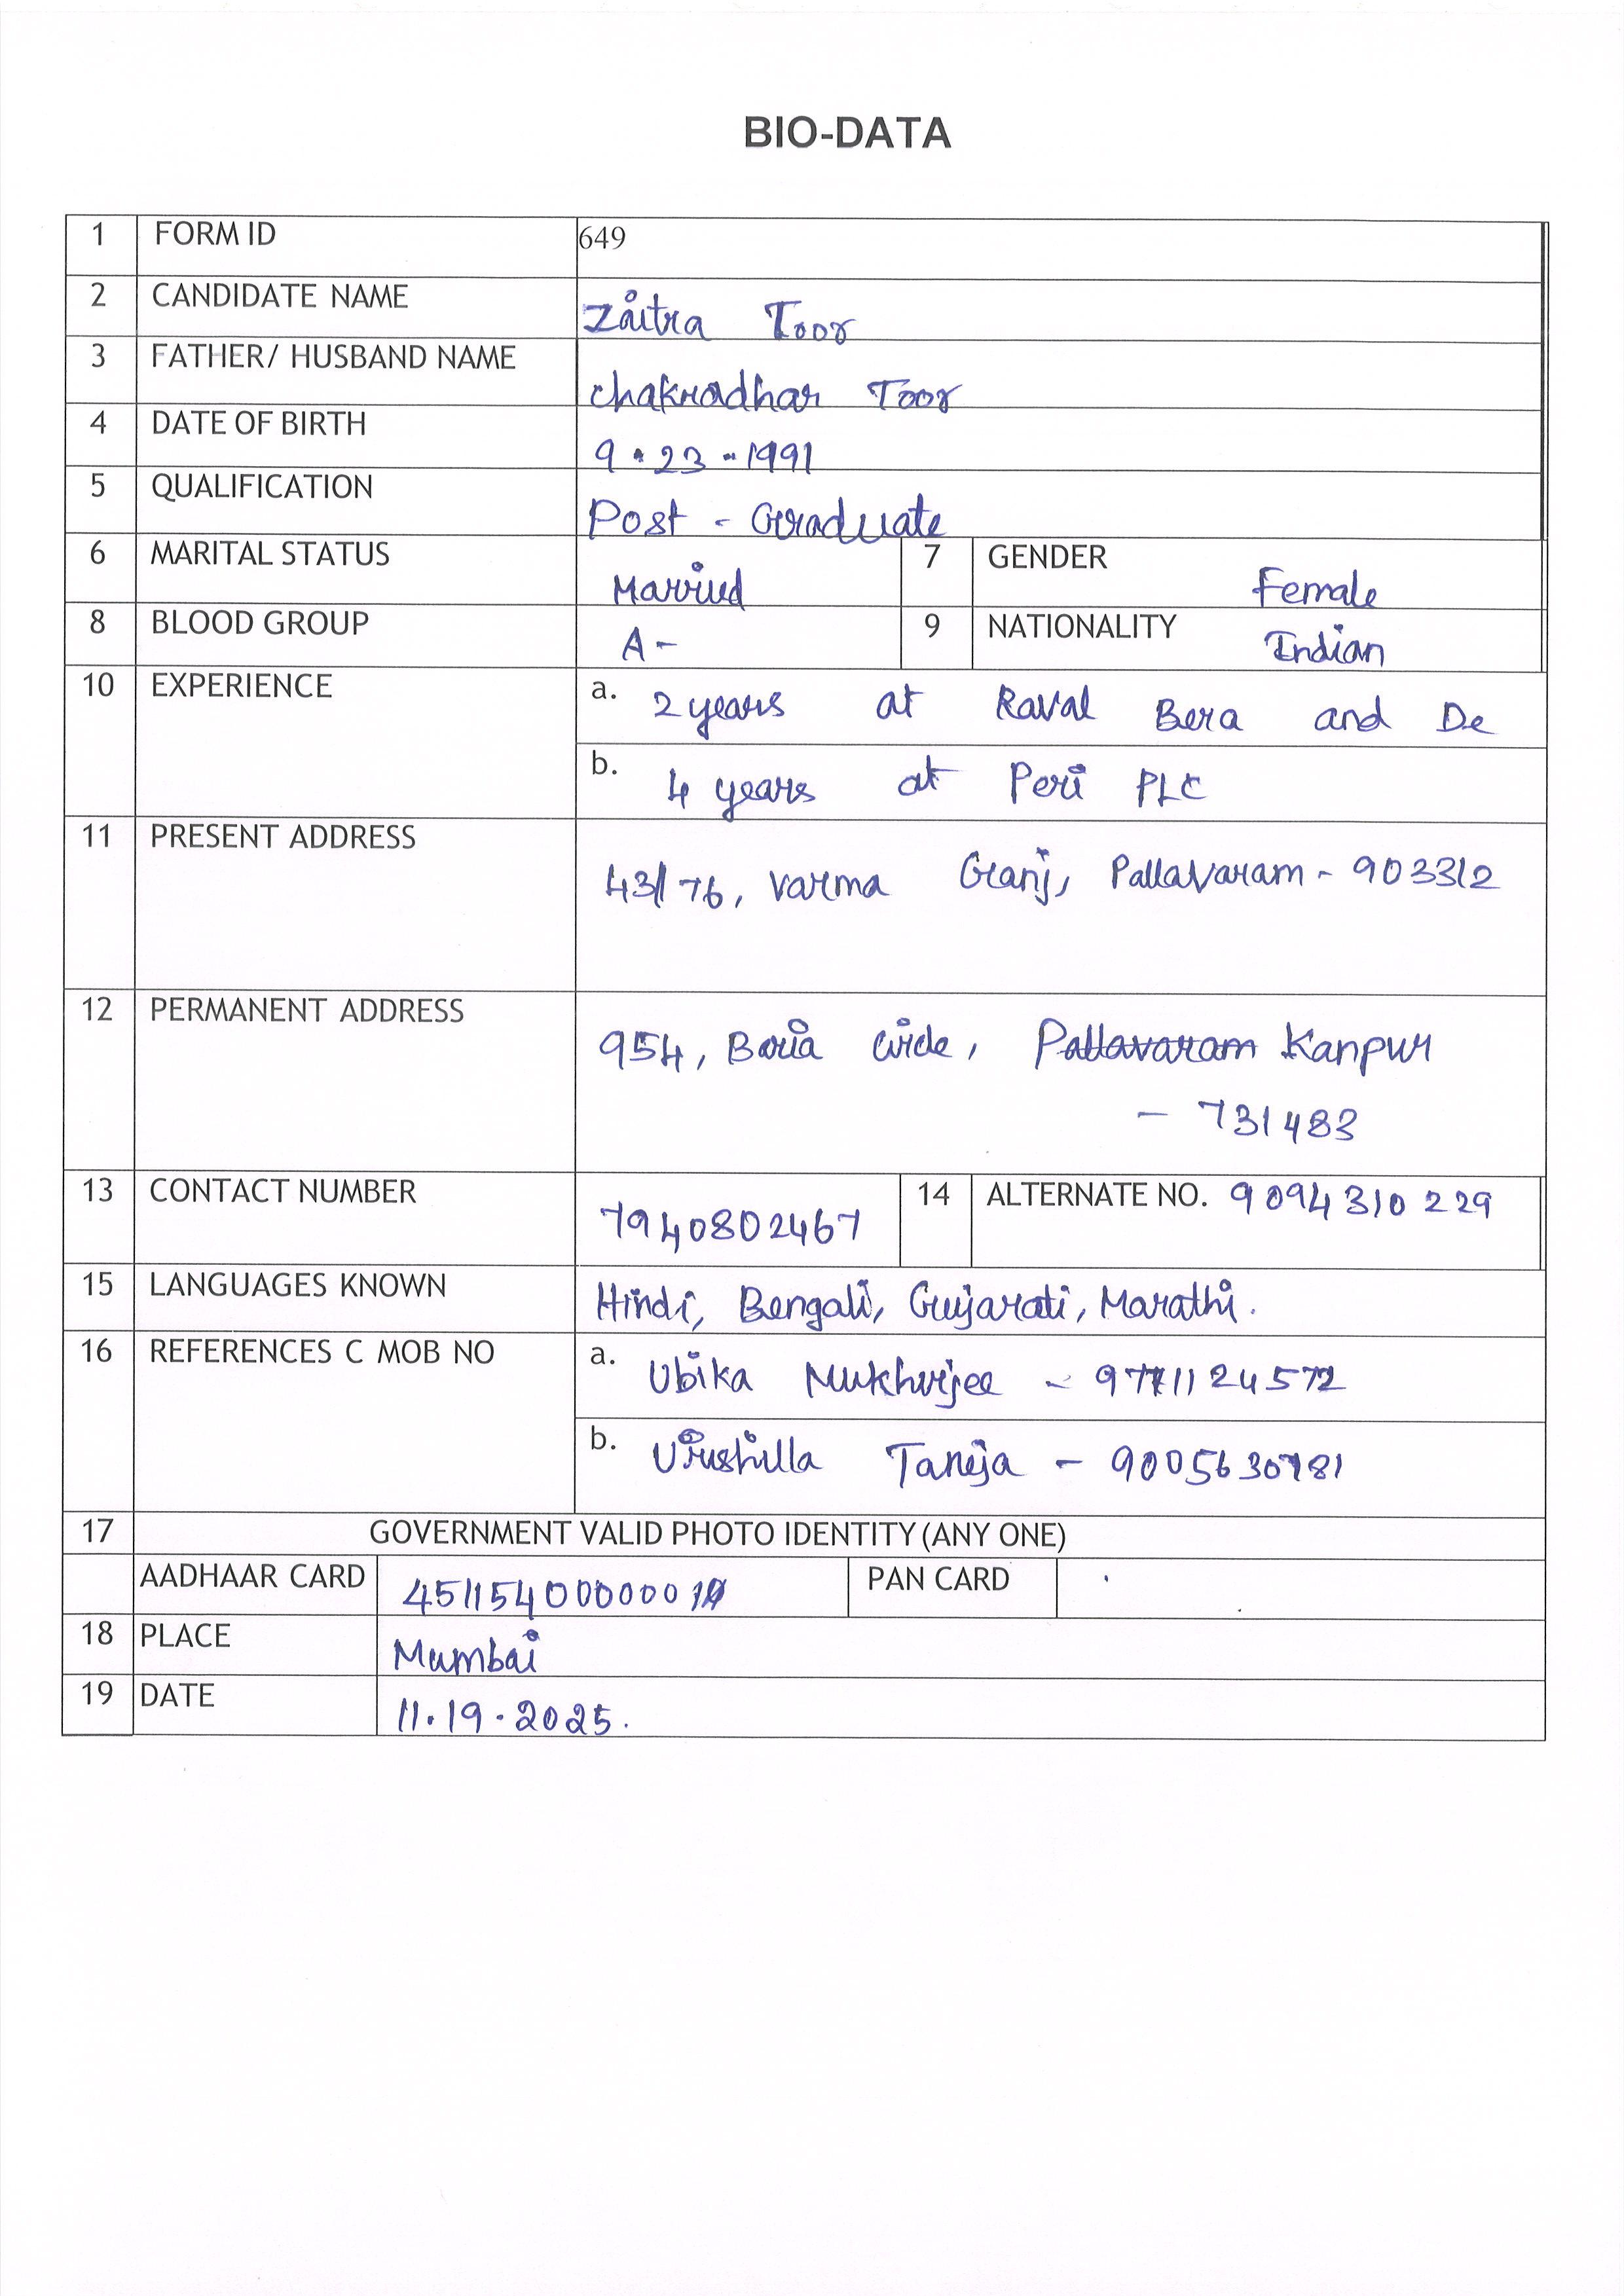 BIO-DATA
1 FORM ID 649
2 CANDIDATE NAME Zaitra Toor
3 FATHER/ HUSBAND NAME Chakradhar Toor
4 DATE OF BIRTH 9.23-1991
5 QUALIFICATION Post - Graduate
6 MARITAL STATUS Married 7 GENDER Female
8 BLOOD GROUP A- 9 NATIONALITY Indian
10 EXPERIENCE a. 2 years at Raval Bera and De
b. 4 years at Peri PLC
11 PRESENT ADDRESS 43/76, Varma Ganj, Pallavaram - 903312
12 PERMANENT ADDRESS 954, Boria Circle, Pallavaram Kanpur
- 731483
13 CONTACT NUMBER 7940802467 14 ALTERNATE NO. 9094310229
15 LANGUAGES KNOWN Hindi, Bengali, Gujarati, Marathi.
16 REFERENCES C MOB NO a. Ubika Mukherjee - 9771124572
b. Urushilla Taneja - 9005630781
17 GOVERNMENT VALID PHOTO IDENTITY (ANY ONE)
AADHAAR CARD PAN CARD
18 PLACE Mumbai
19 DATE 11.19.2025.